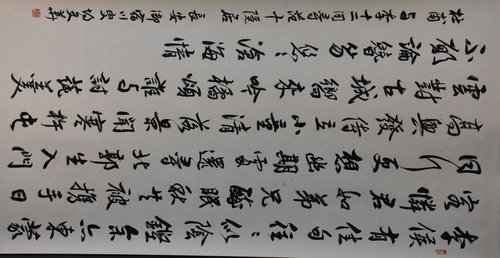 李侯有佳句往〻似陰鏗余亦東蒙
客憐君如弟兄醉眠秋共被攜手日
同行更想幽期處還尋北郭生入門
高興發侍立小童清落景聞寒杵屯
雲對古城向來吟橘頌誰與討蓴羹
不願論簪笏悠〻滄海情
杜甫與李十二同尋范十隱居